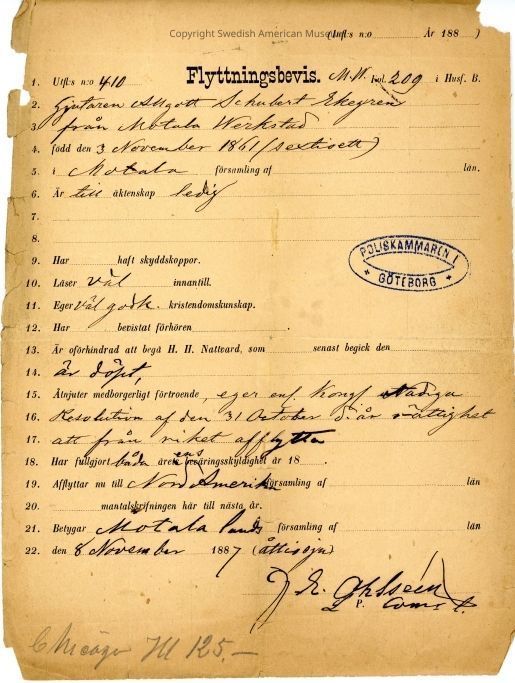 Copyright Swedish American Museum
(Infl:s n:o År 188 )
Flyttningsbevis.
1. Utfl:s n:o 410 M.W. fol. 209 i Husf. B.
2. Gjutaren Algott Schubert Ekegren
3. från Motala Werkstad
4. född den 3 November 1861 (sextiett)
5. i Motala församling af län.
6. Är till äktenskap ledig
7.
8.
9. Har haft skyddskoppor.
10. Läser väl innantill.
11. Eger väl godk. kristendomskunskap.
12. Har bevistat förhören
13. Är oförhindrad att begå H. H. Nattvard, som senast begick den
14. är döpt,
15. Åtnjuter medborgerligt förtroende, eger enl. Kongl Nådiga
16. Resolution af den 31 October d. år rättighet
17. att från riket afflytta
18. Har fullgjort båda årens beväringsskyldighet år 18 .
19. Afflyttar nu till Nord Amerika församling af län
20. mantalskrifningen här till nästa år.
21. Betygar Motala lands församling af län
22. den 8 November 1887 (åttisju)
P.
POLISKAMMAREN I
GÖTEBORG
Chicago Ill 125.—